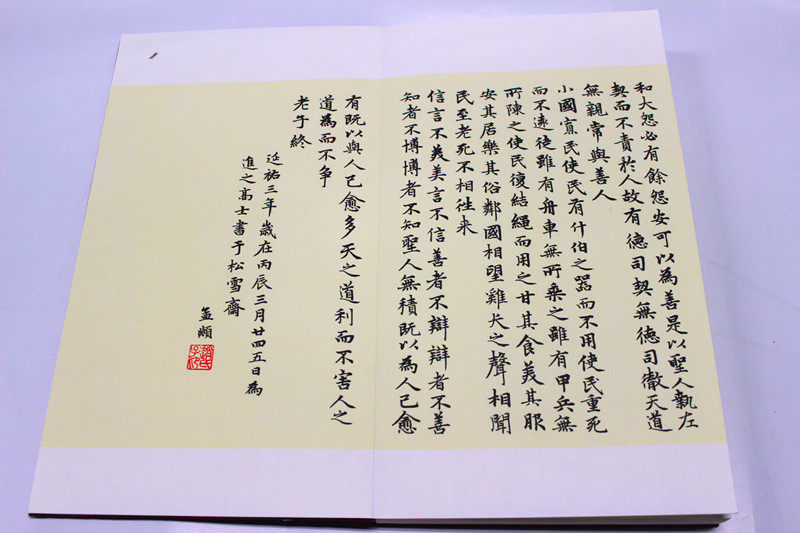 和大怨必有餘怨安可以為善是以聖人執左
契而不責於人故有德司契無德司徹天道
無親常與善人
小國寡民使民有什伯之器而不用使民重死
而不遠徙雖有舟車無所乘之雖有甲兵無
所陳之使民復結繩而用之甘其食美其服
安其居樂其俗鄰國相望雞犬之聲相聞
民至老死不相往来
信言不美美言不信善者不辯辯者不善
知者不博博者不知聖人無積既以為人己愈
有既以與人己愈多天之道利而不害人之
道為而不争
老子終
延祐三年歲在丙辰三月廿四五日為
進之高士書于松雪齋
孟頫
趙氏子昂